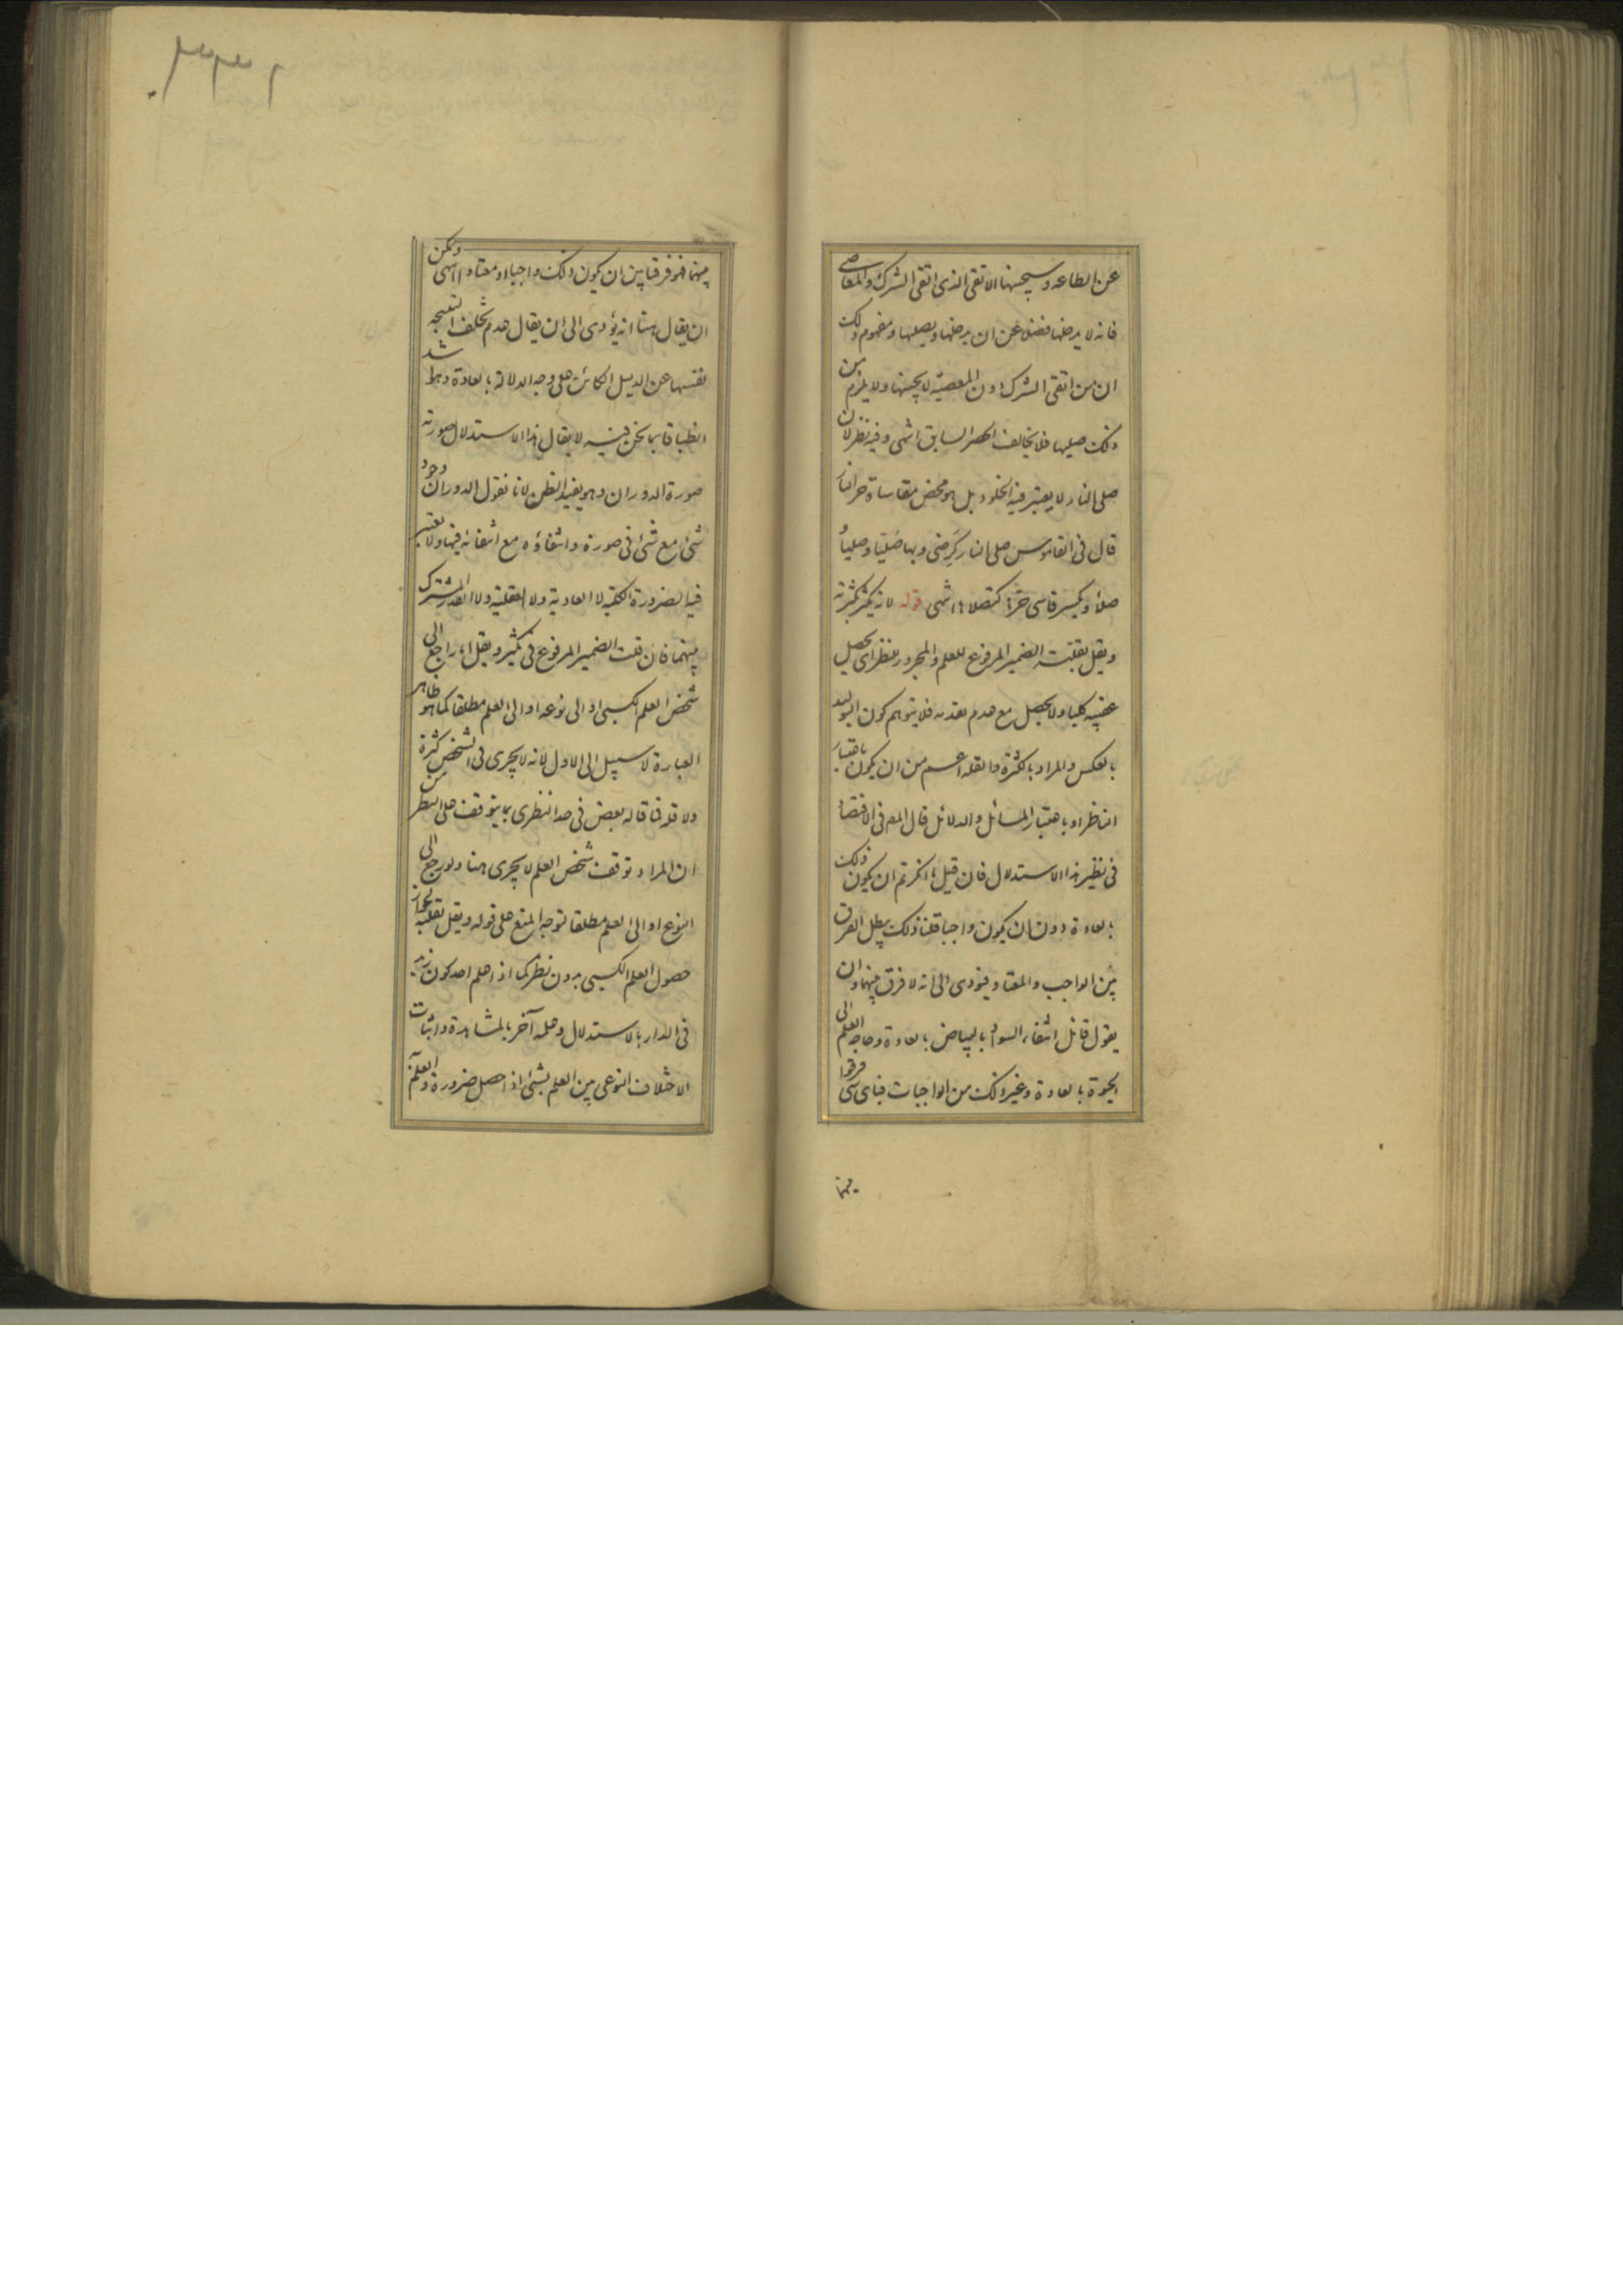 عن الطاعه وسيجنبها الاتقى الذى اتقى الشرك والمعاصى
فانه لا يدخلها فضلا عن ان يدخلها ويصليها ومفهوم ذلك
ان من اتقى الشرك دون المعصية لا يجنبها ولا يلزم من
ذلك صليها فلا يخالف الحصر السابق انتهى وفيه نظر لان
صلى النار لا يعتبر فيه الخلود بل هو محض مقاساة حر النار
قال فى القاموس صلى النار كرضى وبها صليا وصليا
صلاء ويكسر قاسى حرها كتصلاها انتهى قوله لانه يكثر بكثرته
ويقل بقلته الضمير المرفوع للعلم والمجرور للنظر اى يحصل
عقيبه كليا ولا يحصل مع عدم بعدمه فلا يتوهم كون التوليد
بالعكس والمراد بالكثرة والقله اعم من ان يكون باعتبار
الناظر او باعتبار المسائل والدلائل قال المص فى الاقتصاد
فى نظير هذا الاستدلال فان قيل ما انكرتم ان يكون ذلك
بالعادة دون ان يكون واجبا قلنا ذلك يبطل الفرق
بين الواجب والمعتاد فيؤدى الى انه لا فرق بينهما وان
يقول قائل انتفاء السواد بالبياض بالعادة وحاجه العلم الى
الحيوة بالعادة وغير ذلك من الواجبات فباى شى فرقوا
بينهما
بينهما فهو فرقنا بين ان يكون ذلك واجبا او معتادا انتهى ويمكن
ان يقال هنا انه يؤدى الى ان يقال عدم تخلف النتيجه
نفسها عن الدليل الكائن على وجه الدلالة بالعادة وهذا اشد
انطباقا بما نحن فيه لا يقال هذا الاستدلال صورته
صورة الدوران وهو يفيد الظن لانا نقول الدوران وجود
شئ مع شئ فى صورة وانتفاؤه مع انتفائه فيها ولا يعتبر
فيه الضرورة الكلية لا العادية ولا العقلية ولا القدر المشترك
بينهما فان قلت الضمير المرفوع فى يكثر ويقل اما راجع الى
شخص العلم الكسبى او الى نوعه او الى العلم مطلقا كما هو ظاهر
العبارة لا سبيل الى الاول لانه لا يجرى فى الشخص كثرة
ولا قلة فما قاله بعض فى حد النظرى بما يتوقف على النظر من
ان المراد توقف شخص العلم لا يجرى هنا ولو رجع الى
النوع او الى العلم مطلقا توجه المنع على قوله ويقل بقلته لجواز
حصول العلم الكسبى بدون نظر كما اذا علم احد كون زيد
فى الدار بالاستدلال وعلمه آخر بالمشاهدة واثبات
الاختلاف النوعى بين العلم بشئ اذا حصل ضرورة والعلم